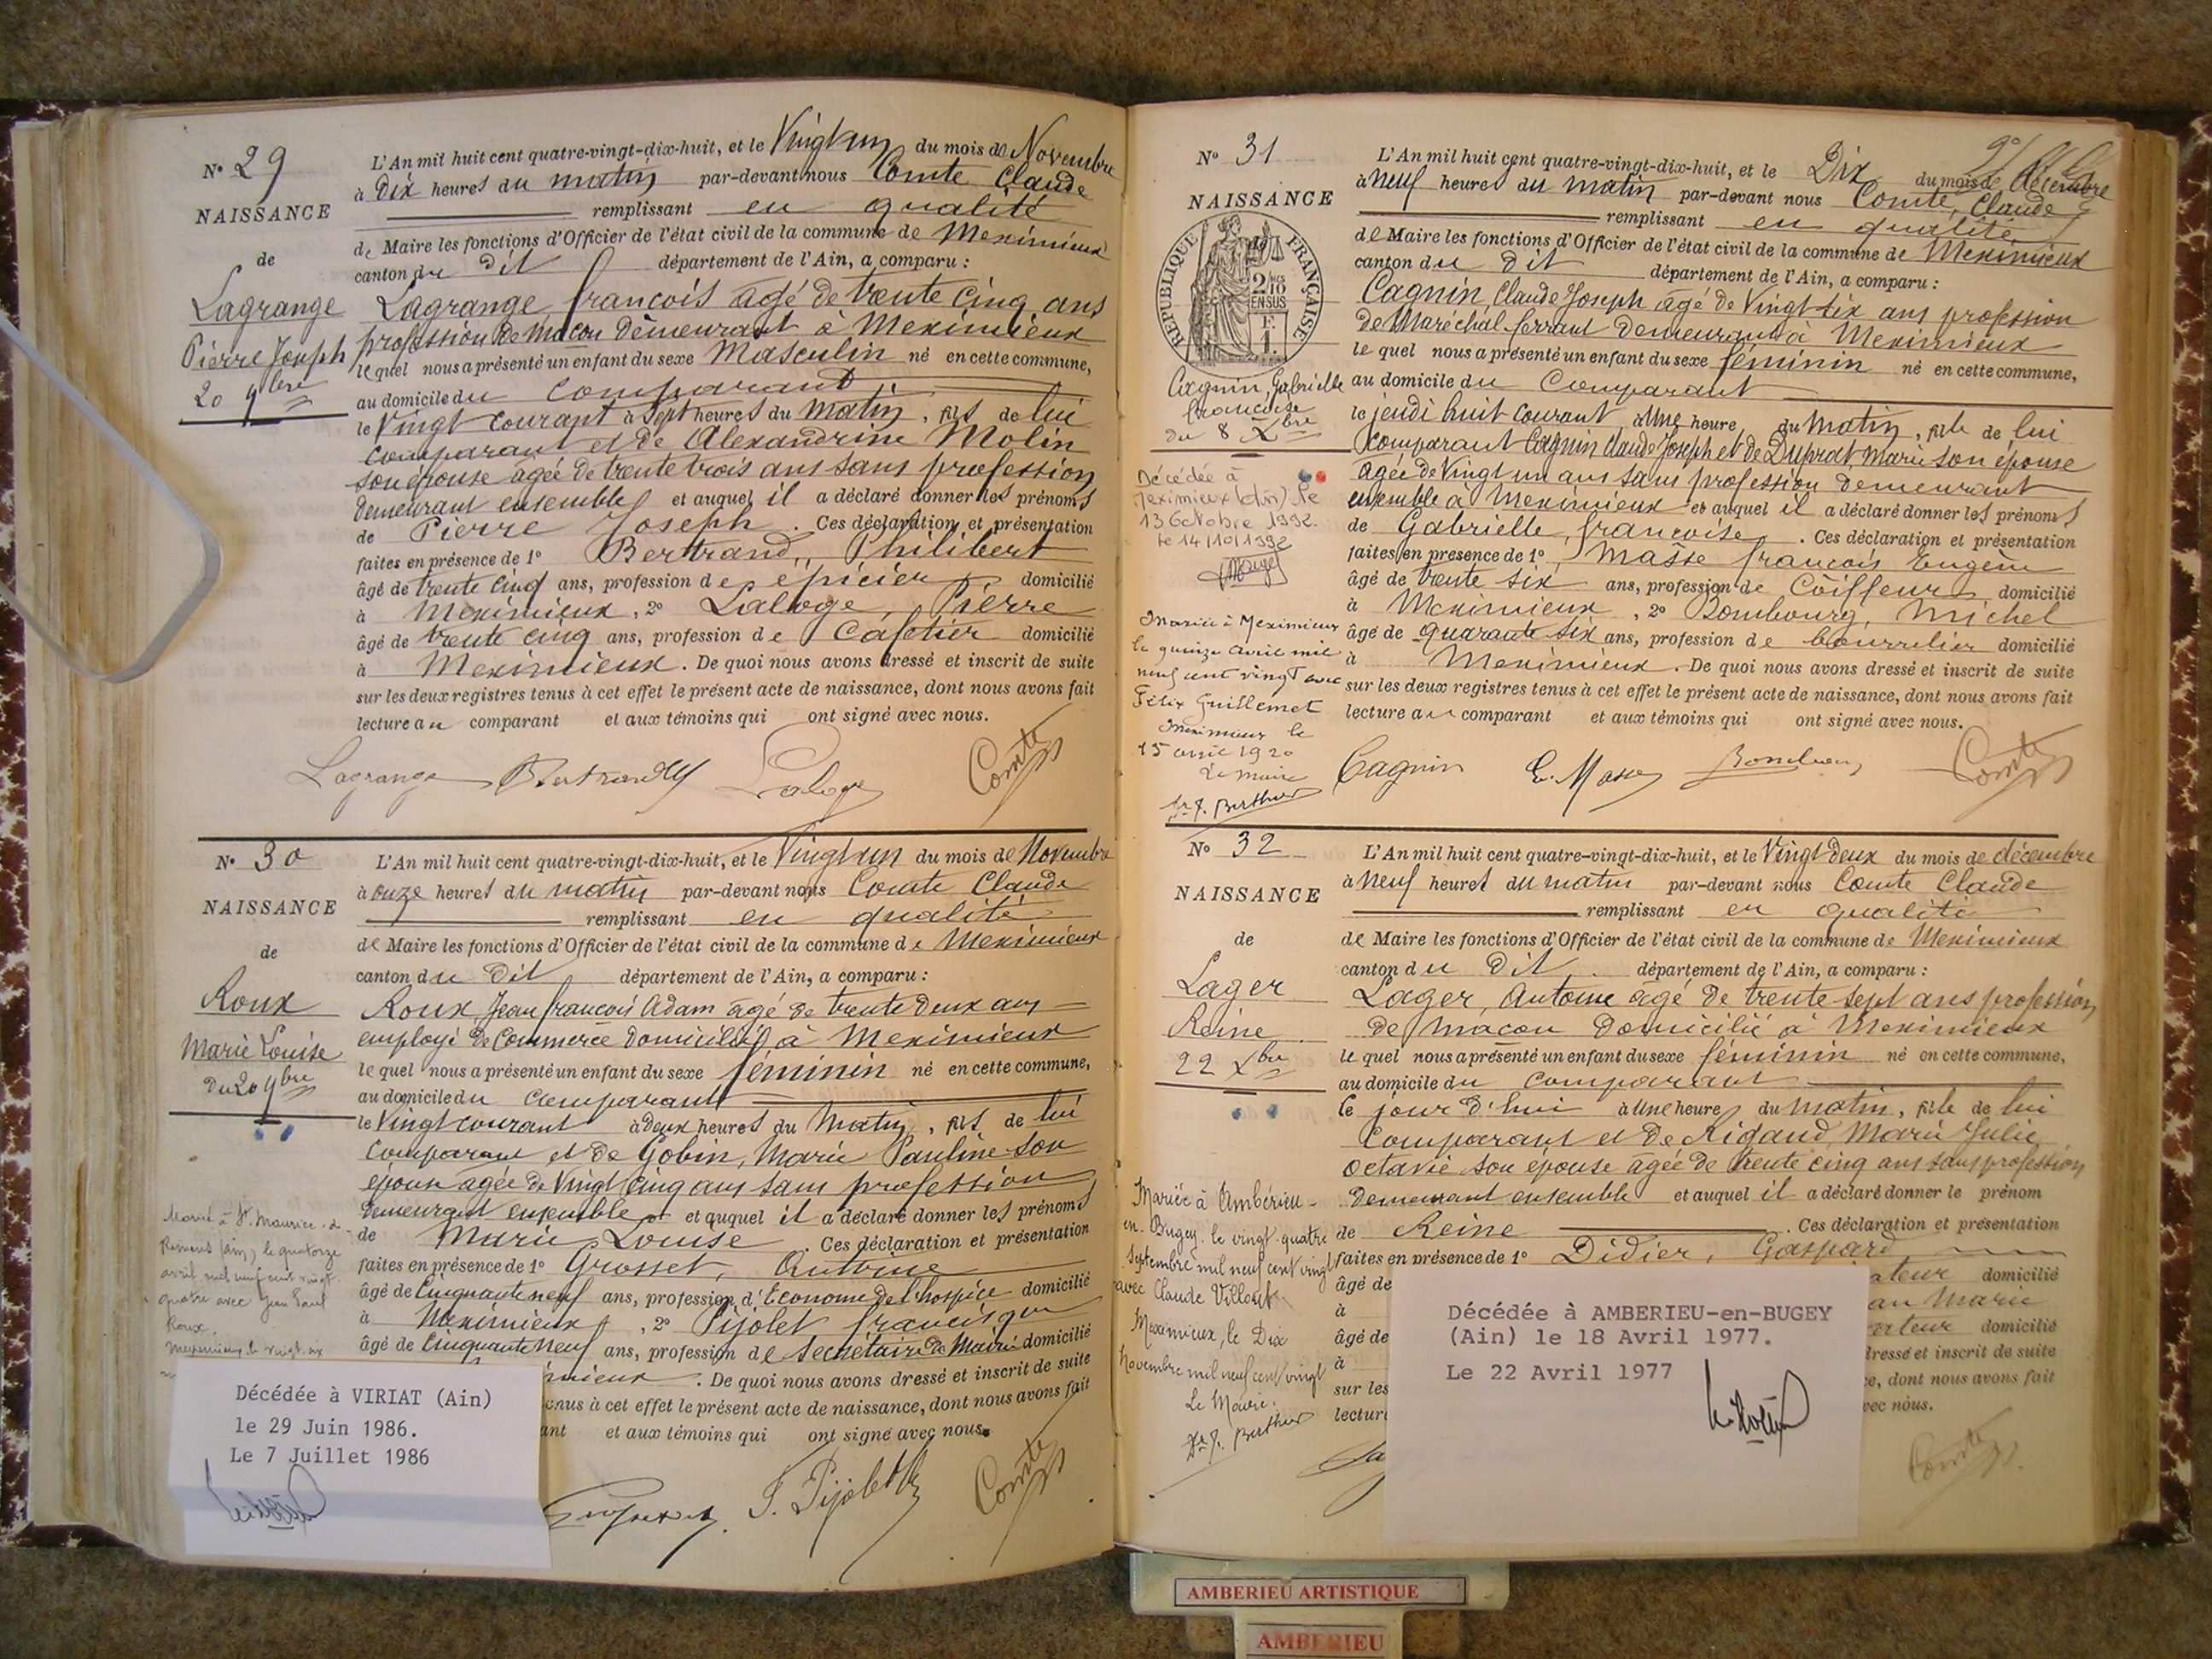 N° 29
NAISSANCE
de
Lagrange
Pierre Joseph
20 9bre
L'An mil huit cent quatre-vingt-dix-huit, et le Vingt un du mois de Novembre
à Dix heures du matin par-devant nous Comte Claude
remplissant en qualité
de Maire les fonctions d'Officier de l'état civil de la commune de Meximieux
canton du dit département de l'Ain, a comparu :
Lagrange, françois âgé de trente cinq ans
profession de Maçon demeurant à Meximieux
lequel nous a présenté un enfant du sexe Masculin né en cette commune,
au domicile du comparant
le Vingt courant à Sept heures du Matin, fils de lui
comparant et de Alexandrine Molin
son épouse agée de trente trois ans sans profession
demeurant ensemble et auquel il a déclaré donner les prénoms
de Pierre Joseph. Ces déclaration et présentation
faites en présence de 1° Bertrand, Philibert
âgé de trente cinq ans, profession de épicier domicilié
à Meximieux, 2° Laloge, Pierre
âgé de trente cinq ans, profession de Cafetier domicilié
à Meximieux. De quoi nous avons dressé et inscrit de suite
sur les deux registres tenus à cet effet le présent acte de naissance, dont nous avons fait
lecture au comparant et aux témoins qui ont signé avec nous.
Lagrange Bertrand Laloge Comte
N° 30
NAISSANCE
de
Roux
Marie Louise
Du 20 9bre
L'An mil huit cent quatre-vingt-dix-huit, et le Vingt un du mois de Novembre
à onze heures du matin par-devant nous Comte Claude
remplissant en qualité
de Maire les fonctions d'Officier de l'état civil de la commune de Meximieux
canton du dit département de l'Ain, a comparu :
Roux, Jean françois Adam âgé de trente deux ans
employé de Commerce domicilié à Meximieux
lequel nous a présenté un enfant du sexe féminin né en cette commune,
au domicile du comparant
le Vingt courant à deux heures du Matin, fils de lui
comparant et de Gobin, Marie Pauline son
épouse agée de Vingt cinq ans sans profession
demeurant ensemble et auquel il a déclaré donner les prénoms
de Marie Louise. Ces déclaration et présentation
faites en présence de 1° Grosset, Antoine
âgé de Cinquante neuf ans, profession d'Econome de l'hospice domicilié
à Meximieux, 2° Pijolet francisque
âgé de Cinquante neuf ans, profession de Secrétaire de Mairie domicilié
mieux. De quoi nous avons dressé et inscrit de suite
enus à cet effet le présent acte de naissance, dont nous avons fait
ant et aux témoins qui ont signé avec nous.
Mariée à St Maurice-de-
Rémens (Ain), le quatorze
avril mil neuf cent vingt
quatre avec Jean Paul
Roux.
Meximieux le vingt six
Décédée à VIRIAT (Ain)
le 29 Juin 1986.
Le 7 Juillet 1986
F. Pijolet Comte
N° 31
NAISSANCE
REPUBLIQUE FRANÇAISE
2/10
EN SUS
Cagnin, Gabrielle
françoise
du 8 Xbre
Décédée à
Meximieux (Ain) le
13 Octobre 1992.
le 14/10/1992
Mariée à Meximieux
le quinze avril mil
neuf cent vingt avec
Félix Guillemet
Meximieux le
15 avril 1920
Le maire
Dr J. Berthier
L'An mil huit cent quatre-vingt-dix-huit, et le Dix du mois de décembre
à Neuf heures du matin par-devant nous Comte, Claude
remplissant en qualité
de Maire les fonctions d'Officier de l'état civil de la commune de Meximieux
canton du dit département de l'Ain, a comparu :
Cagnin, Claude Joseph âgé de Vingt six ans profession
de Maréchal ferrant demeurant à Meximieux
lequel nous a présenté un enfant du sexe féminin né en cette commune,
au domicile du Comparant
le jeudi huit courant, à Une heure du Matin, fille de lui
comparant Cagnin Claude Joseph et de Duprat, Marie son épouse
agée de Vingt un ans sans profession demeurant
ensemble à Meximieux et auquel il a déclaré donner les prénoms
de Gabrielle, françoise. Ces déclaration et présentation
faites en présence de 1° Masse françois Eugène
âgé de trente six ans, profession de Coiffeur domicilié
à Meximieux, 2° Bombourg, Michel
âgé de quarante six ans, profession de bourrelier domicilié
à Meximieux. De quoi nous avons dressé et inscrit de suite
sur les deux registres tenus à cet effet le présent acte de naissance, dont nous avons fait
lecture au comparant et aux témoins qui ont signé avec nous.
Cagnin E. Masse Comte
N° 32
NAISSANCE
de
Lager
Reine
22 Xbre
L'An mil huit cent quatre-vingt-dix-huit, et le Vingt deux du mois de décembre
à Neuf heures du matin par-devant nous Comte Claude
remplissant en qualité
de Maire les fonctions d'Officier de l'état civil de la commune de Meximieux
canton du Dit département de l'Ain, a comparu :
Lager, Antoine âgé de trente sept ans profession
de maçon domicilié à Meximieux
lequel nous a présenté un enfant du sexe féminin né en cette commune,
au domicile du comparant
le jour d'hui à Une heure du matin, fille de lui
comparant et de Rigaud, Marie Julie
Octavie son épouse agée de trente cinq ans sans profession
demeurant ensemble et auquel il a déclaré donner le prénom
de Reine. Ces déclaration et présentation
faites en présence de 1° Didier, Gaspard
âgé de ateur domicilié
à an Marie
âgé de domicilié
à dressé et inscrit de suite
sur les ce, dont nous avons fait
lectur vec nous.
Mariée à Ambérieu-
en-Bugey le vingt-quatre
Septembre mil neuf cent vingt
avec Claude
Meximieux, le Dix
Novembre mil neuf cent vingt
Le Maire.
Dr J. Berthier
Décédée à AMBERIEU-en-BUGEY
(Ain) le 18 Avril 1977.
Le 22 Avril 1977
Comte
AMBERIEU ARTISTIQUE
AMBERIEU